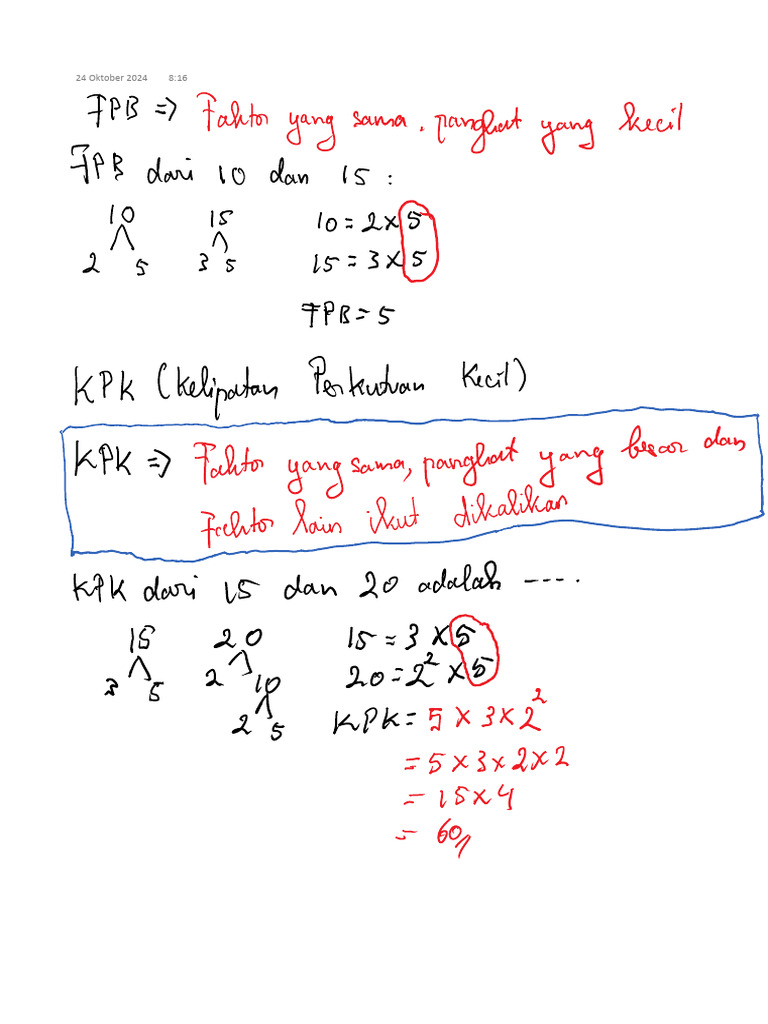 24 Oktober 2024 8:16
FPB => Faktor yang sama, pangkat yang kecil
FPB dari 10 dan 15 :
10 15 10 = 2 x 5
2 5 3 5 15 = 3 x 5
FPB = 5
KPK (Kelipatan Perkutuan Kecil)
KPK => Faktor yang sama, pangkat yang besar dan
Faktor lain ikut dikalikan
KPK dari 15 dan 20 adalah ----.
15 20 15 = 3 x 5
3 5 2 10 20 = 2² x 5
2 5 KPK = 5 x 3 x 2²
= 5 x 3 x 2 x 2
= 15 x 4
= 60//